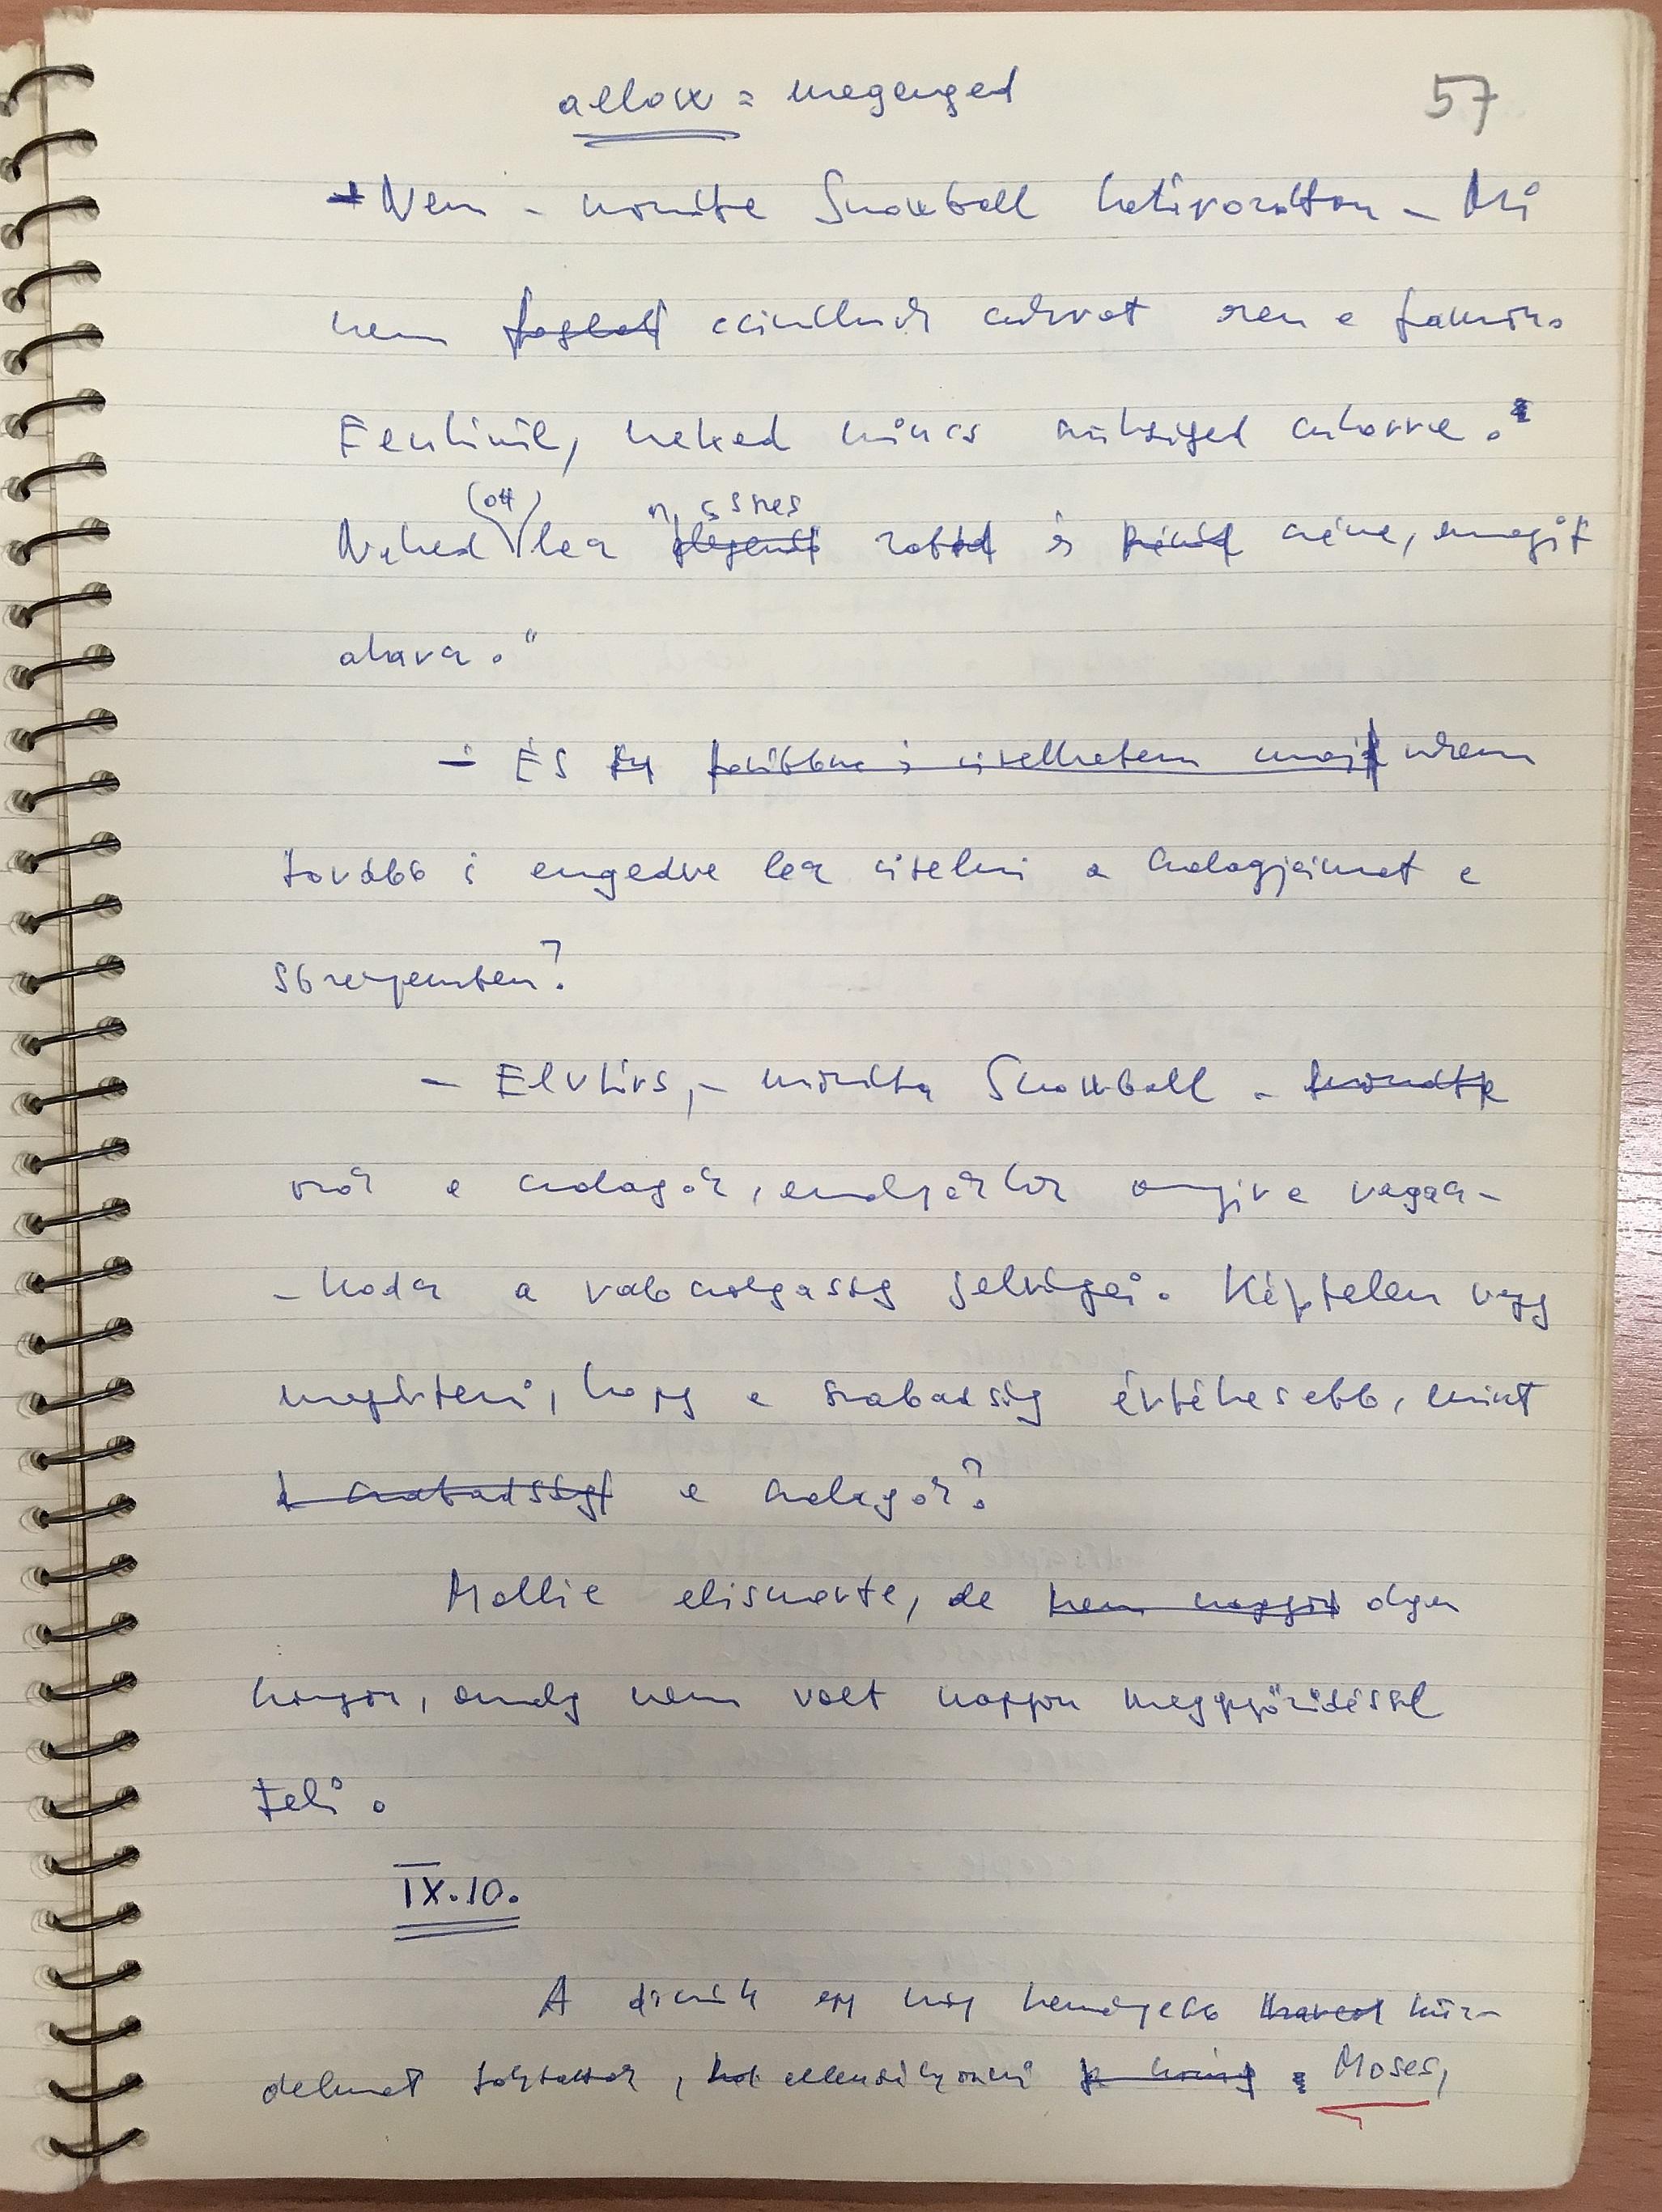 allow = megenged
57
Nem - mondta Snowball határozottan - Mi
nem csinálunk cukrot ezen a farmon.
Ezenkívül, neked nincs szükséged cukorra.
(ott) összes
Neked lesz zab és széna, amagit
akarsz."
- És nekem
tovább is engedve lesz viselni a szalagjaimat a
sörényemben?
- Elvtárs, - mondta Snowball -
azok a szalagok, amelyekhez annyira ragasz-
-kodsz a rabszolgaság jelvényei. Képtelen vagy
megérteni, hogy a szabadság értékesebb, mint
a szabadság a szalagok?
Mollie elismerte, de olyan
hangon, amely nem volt nagyon meggyőződéssel
teli.
IX.10.
A disznók egy még keményebb küz-
delmet folytattak, ellensúlyozni a Moses,